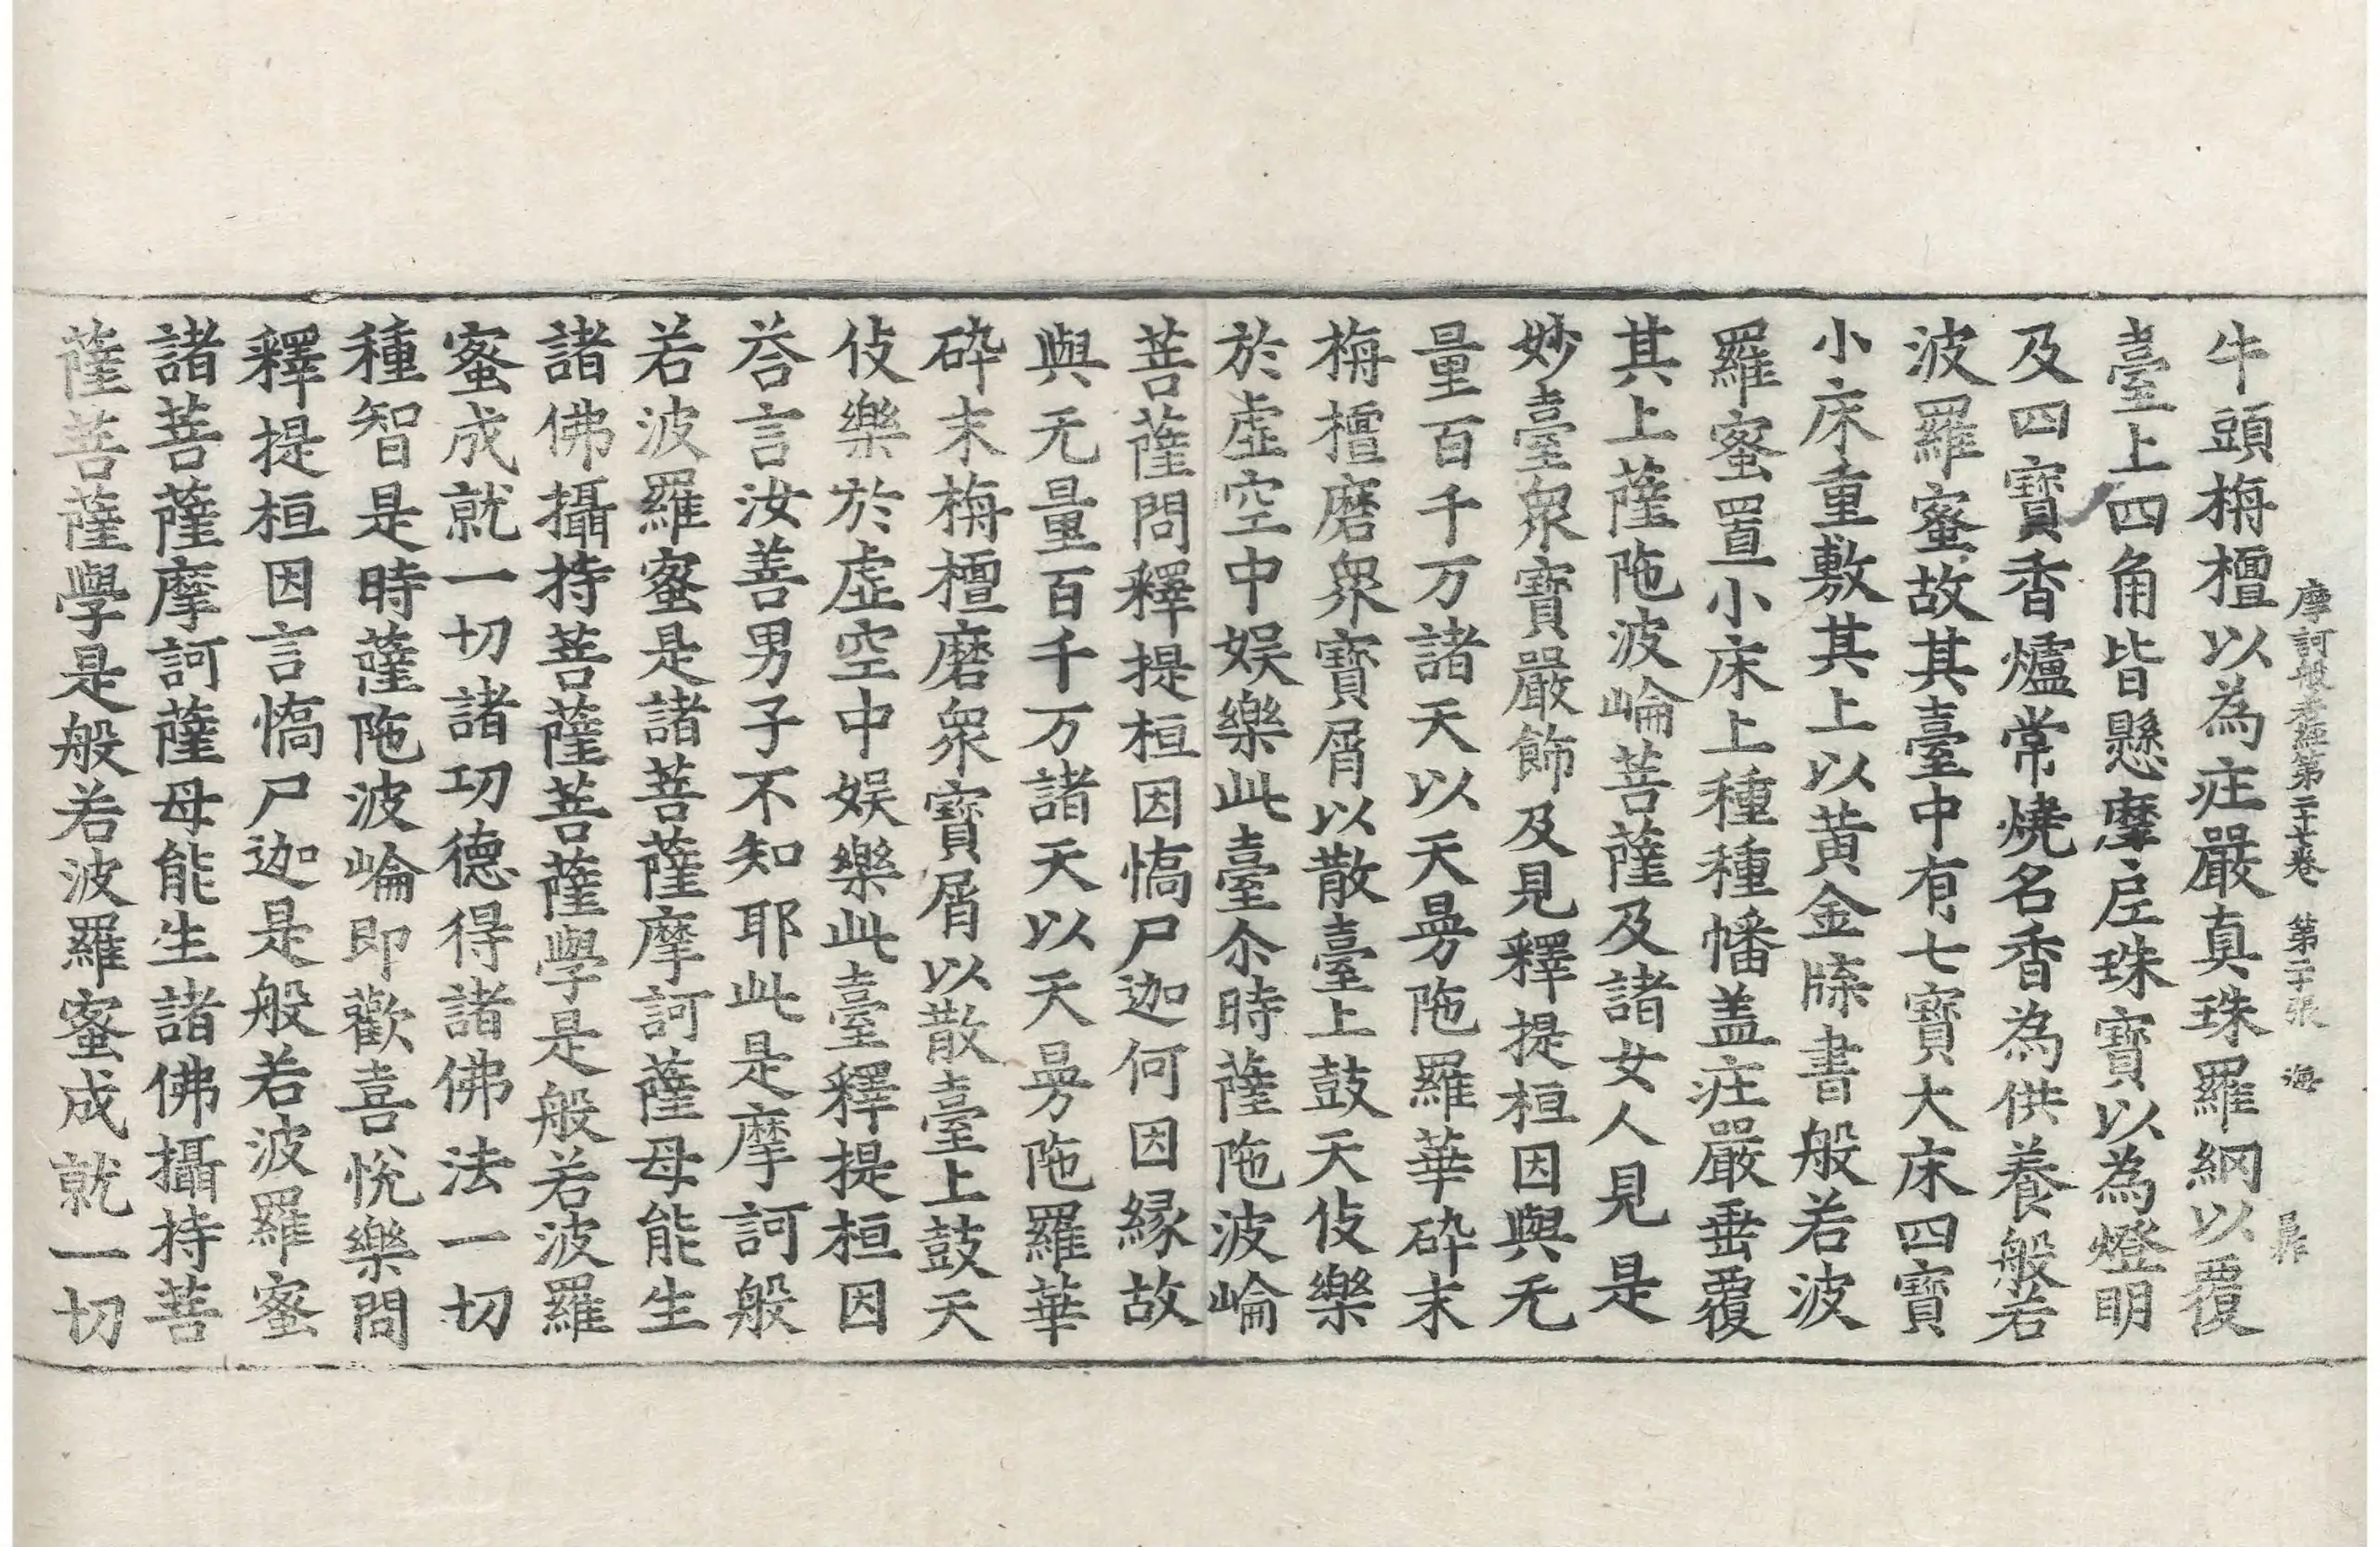 摩訶般若經第二十七卷 第二十張 海
牛頭栴檀以為庄嚴真珠羅網以覆
臺上四角皆懸摩尼珠寶以為燈明
及四寶香爐常燒名香為供養般若
波羅蜜故其臺中有七寶大床四寶
小床重敷其上以黃金牒書般若波
羅蜜置小床上種種幡盖庄嚴垂覆
其上薩陁波崙菩薩及諸女人見是
妙臺衆寶嚴飾及見釋提桓因與无
量百千万諸天以天曼陁羅華碎末
栴檀磨衆寶屑以散臺上鼓天伎樂
於虛空中娛樂此臺尒時薩陁波崙
菩薩問釋提桓因憍尸迦何因緣故
與无量百千万諸天以天曼陁羅華
碎末栴檀磨衆寶屑以散臺上鼓天
伎樂於虛空中娛樂此臺釋提桓因
荅言汝善男子不知耶此是摩訶般
若波羅蜜是諸菩薩摩訶薩母能生
諸佛攝持菩薩菩薩學是般若波羅
蜜成就一切諸功德得諸佛法一切
種智是時薩陁波崙即歡喜悅樂問
釋提桓因言憍尸迦是般若波羅蜜
諸菩薩摩訶薩母能生諸佛攝持菩
薩菩薩學是般若波羅蜜成就一切